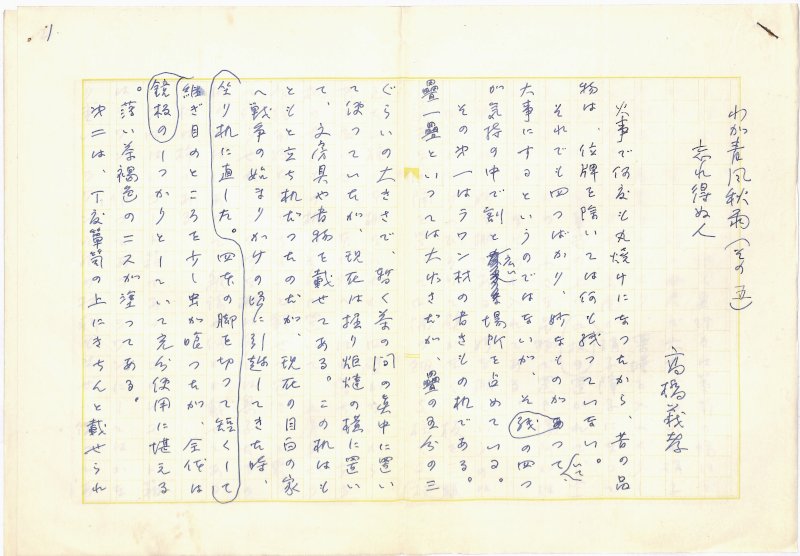 1
わが青風秋雨（その五）
忘れ得ぬ人
高橋義孝
火事で何度も丸焼けになつたから、昔の品
物は、位牌を除いては何も残つていない。
それでも四つばかり、妙なものがあつて、
大事にするというのではないが、その四つ
が気持の中で割と広い場所を占めている。
その第一はラワン材の古きもの机である。
疊一疊といつては大げさだが、疊の五分の三
ぐらいの大きさで、暫く茶の間の真中に置い
て使つていたが、現在は掘り炬燵の横に置い
て、文房具や書物を載せてある。この机はも
ともと立ち机だつたのだが、現在の目白の家
へ戦争の始まりがけの頃に引越してきた時、
坐り机に直した。四本の脚を切つて短くして
継ぎ目のところを少し虫が喰つたが、全体は
しつかりとしていて充分使用に堪える
鏡板の
。薄い茶褐色のニスが塗つてある。
第二は、丁度箪笥の上にきちんと載せられ